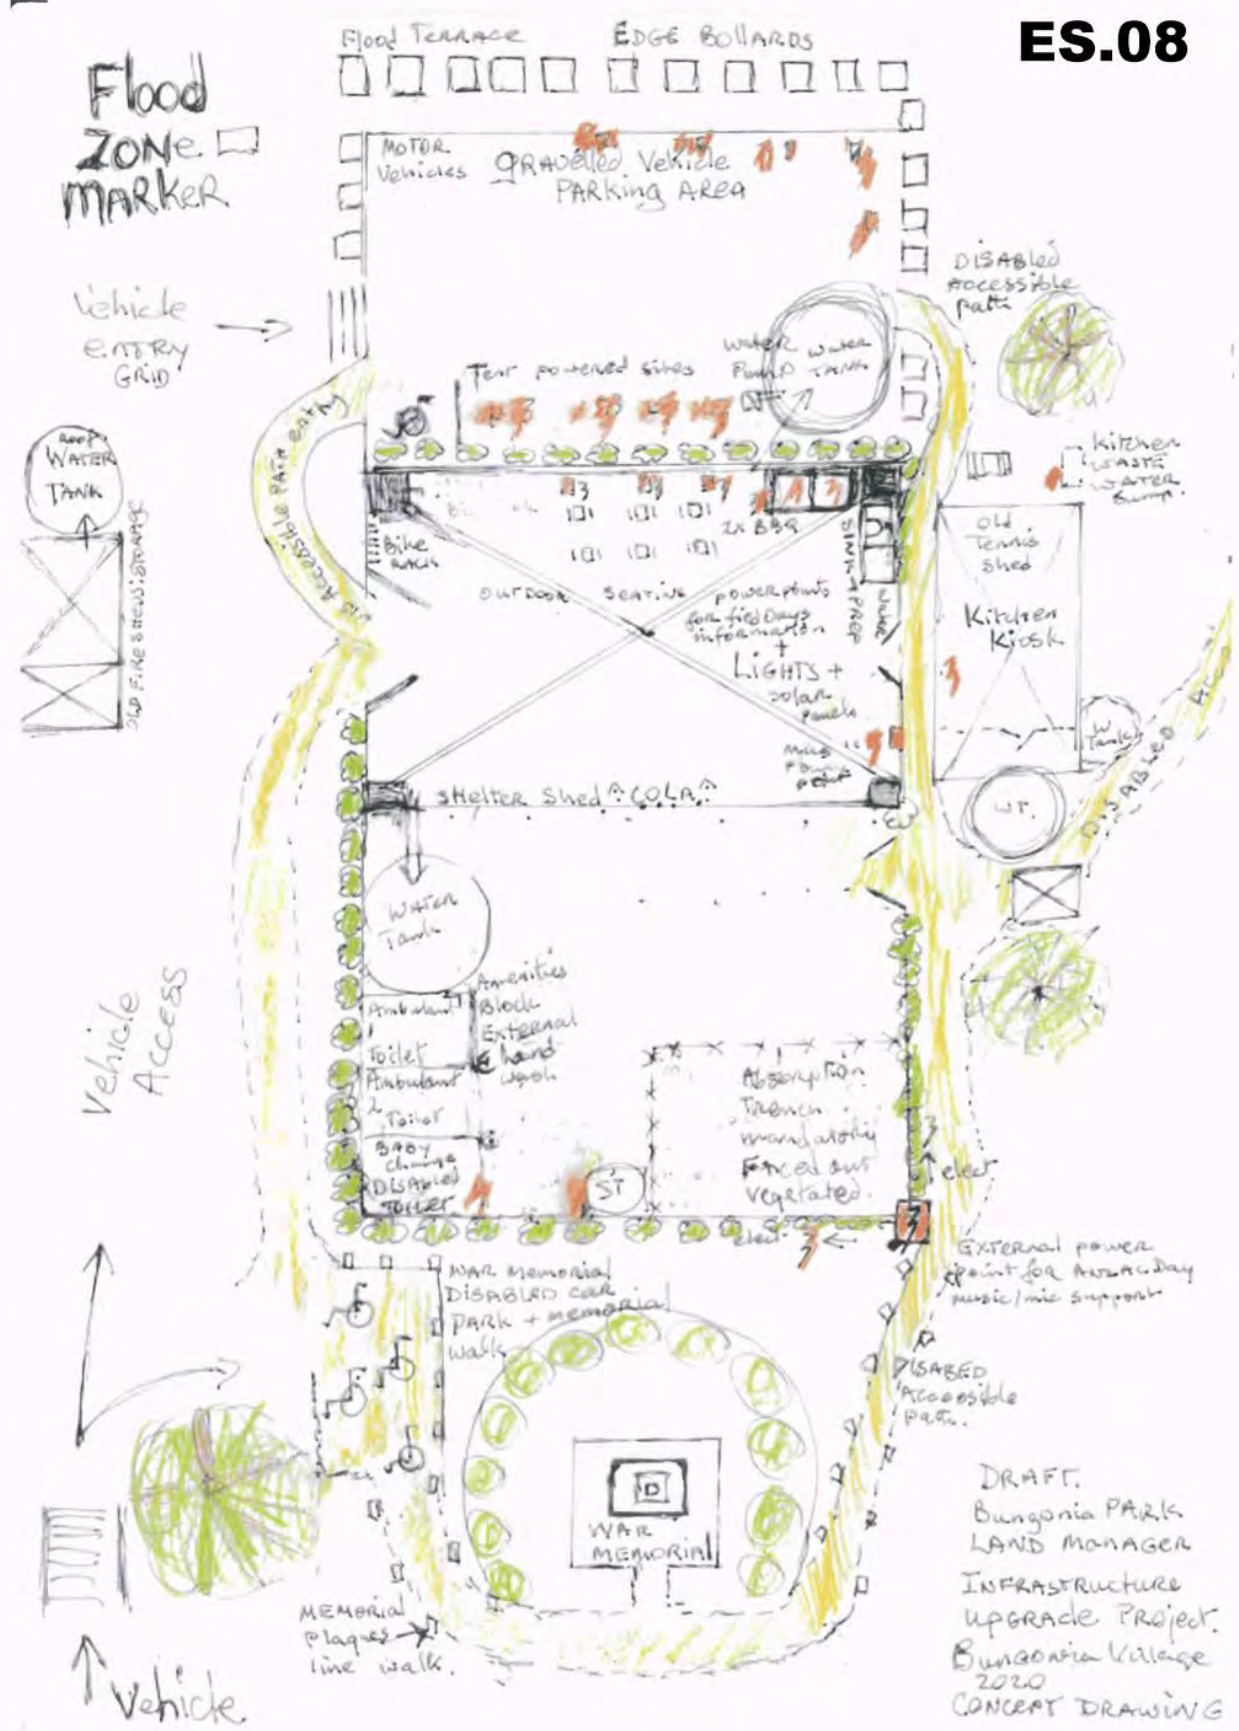 ES.08
Flood TERRACE EDGE BOLLARDS
Flood
ZONE
MARKER
MOTOR
Vehicles
GRAVELLED Vehicle
PARKing AREA
Vehicle
ENTRY
GRID
DISABled
ACCESSIBLE
path
Tent powered sites
WATER
Pump
WATER
TANK
Roof
WATER
TANK
OLD FIRE SHED/STORAGE
DIS Accessible Path entry
Kitchen
WASTE
WATER
Bike
RACK
2x BBQ
SINK + PREP
WATER
OUTDOOR SEATING
powerpoints
for field Days
information
+
LIGHTS +
solar
panels
Old
Tennis
Shed
Kitchen
Kiosk
W
Tank
WT.
DISABLED
SHELTER Shed "COLA"
WATER
Tank
Amenities
Block
EXTERNAL
hand
wash
Ambulant
1
Toilet
Ambulant
2
Toilet
BABY
change
DISABLED
TOILET
ST
Absorption
Trench
mandatory
Fenced out
vegetated.
elect
elect
Vehicle
Access
EXTERNAL power
point for ANZAC Day
music/mic support
WAR MEMORIAL
DISABLED CAR
PARK + memorial
walk
DISABED
Accessible
Path.
WAR
MEMORIAL
MEMORIAL
plaques
line walk.
Vehicle
DRAFT.
Bungonia PARK
LAND MANAGER
INFRASTRUCTURE
UPGRADE PROJECT.
Bungonia Village
2020
CONCEPT DRAWING